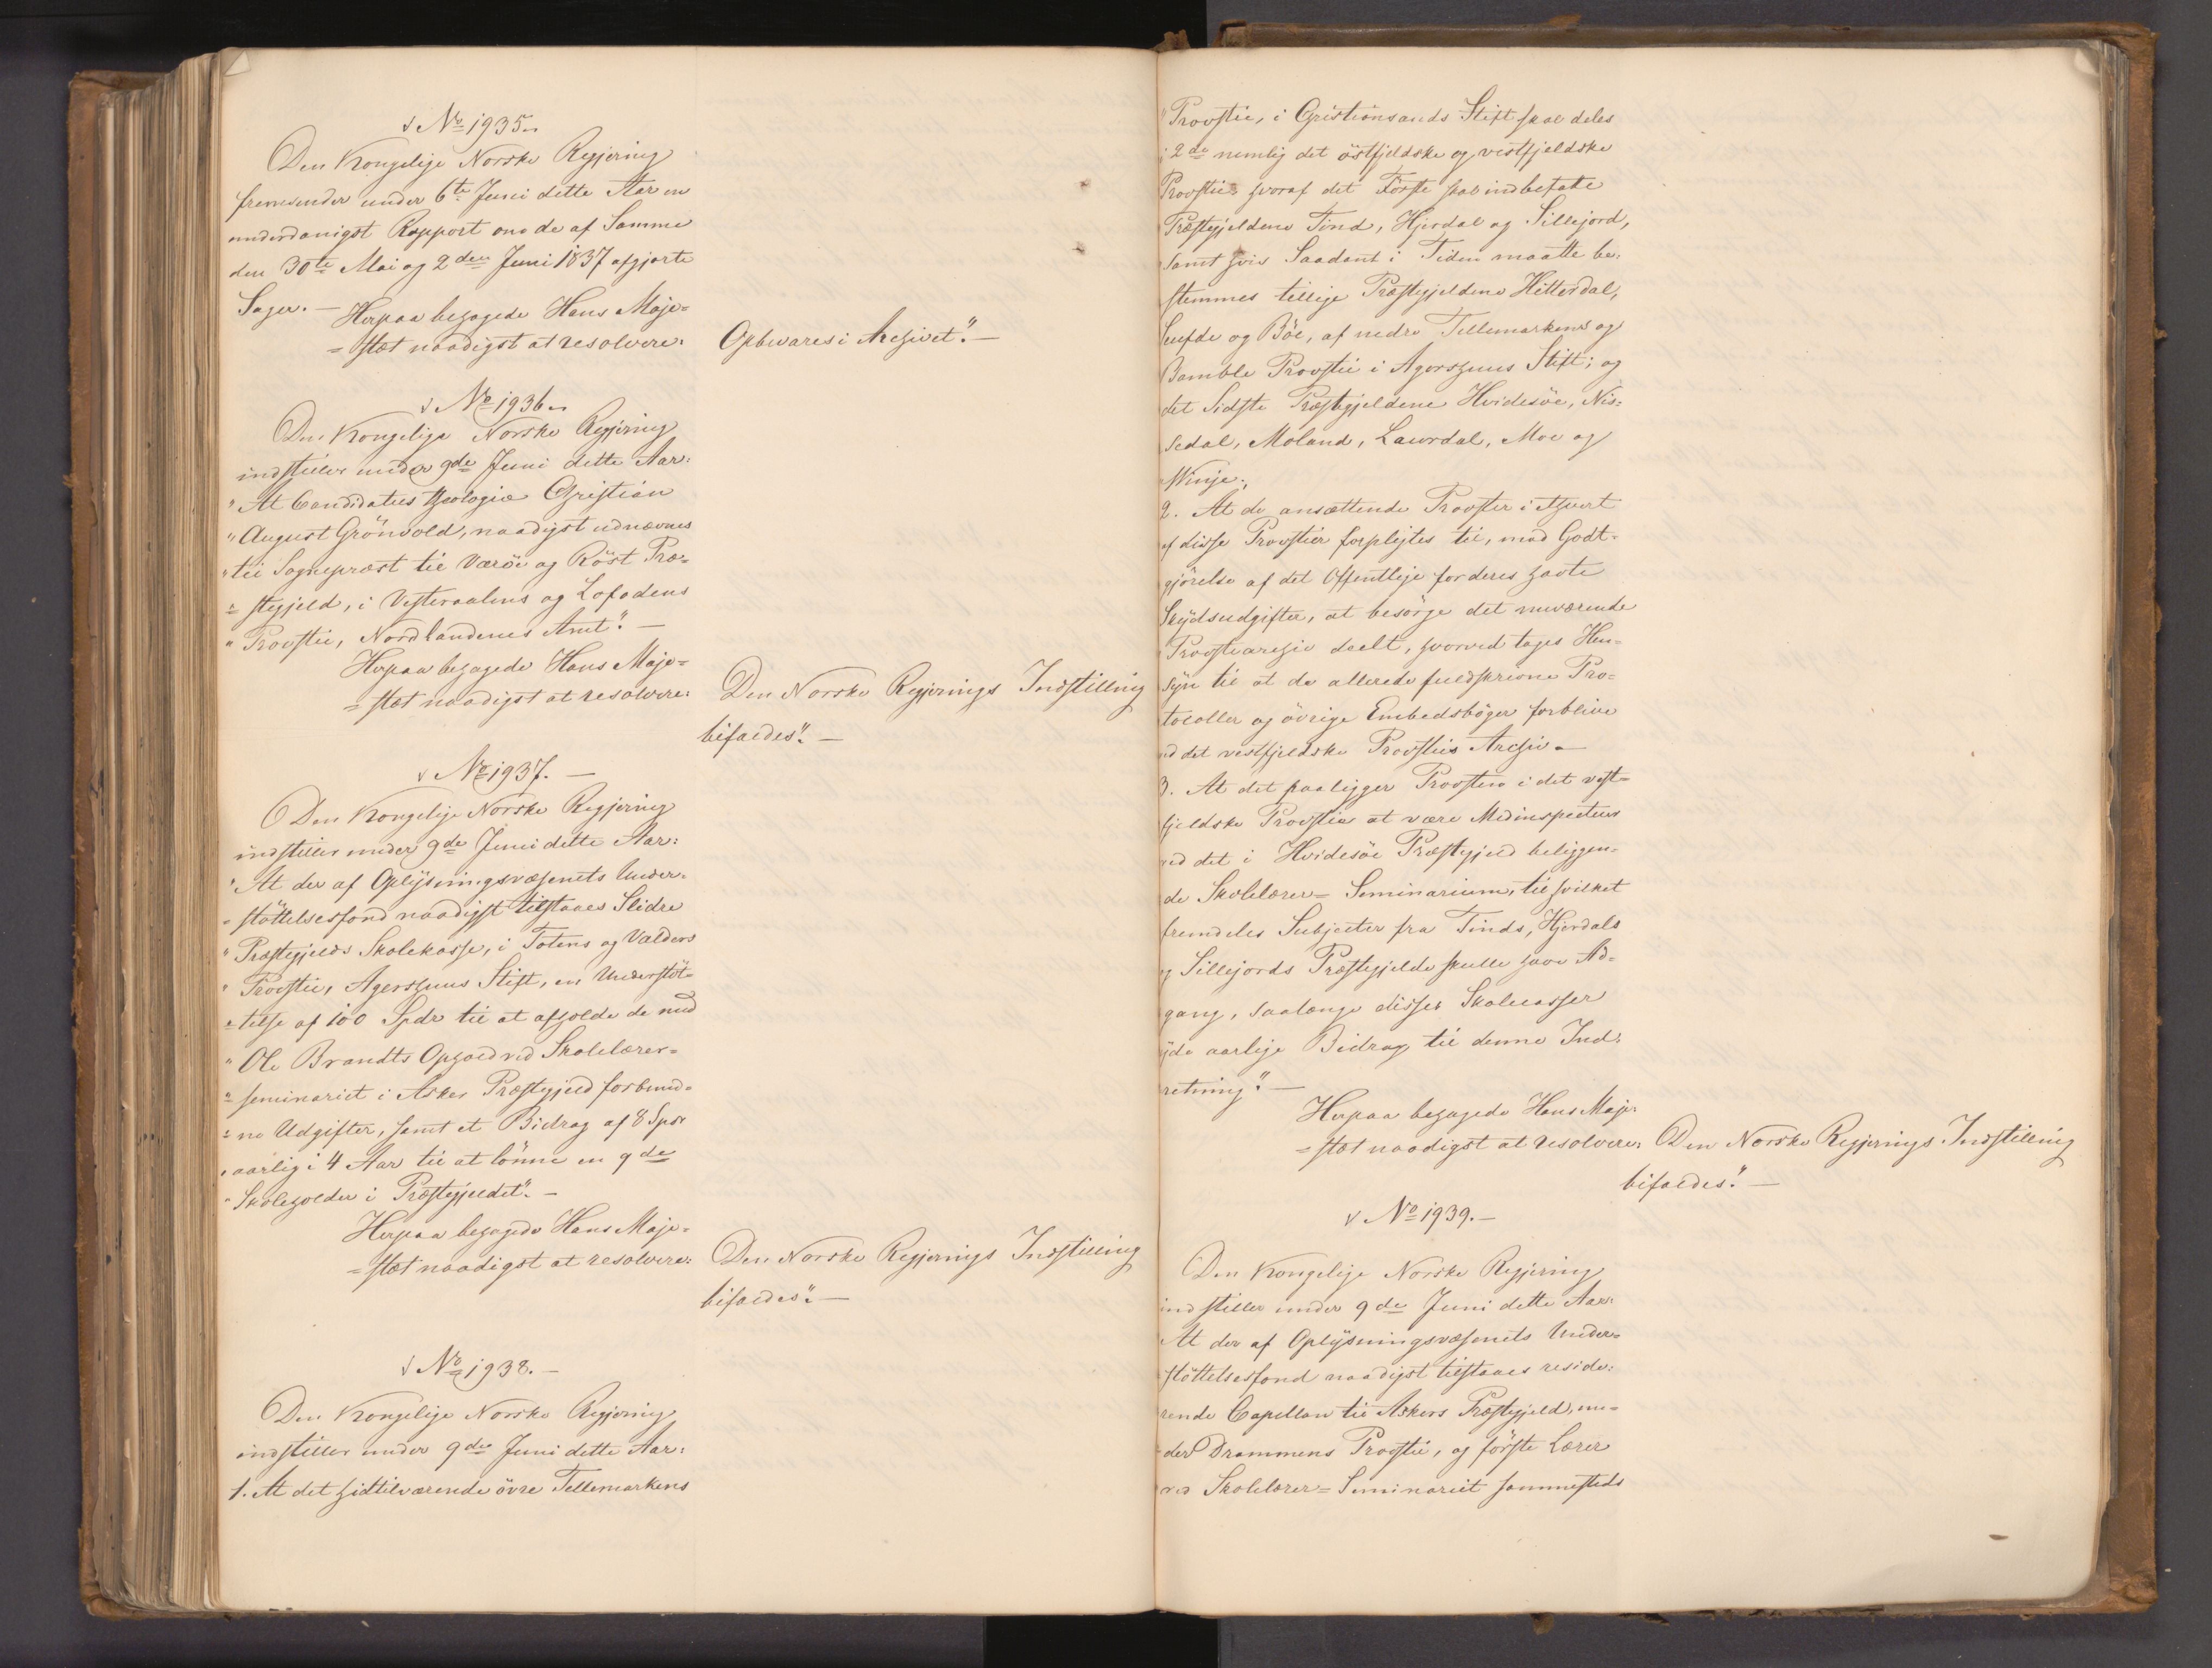 √ No 1935.
Den Kongelige Norske Regjering
fremsender under 6te Juni dette Aar en
underdanigst Rapport om de af Samme
den 30te Mai og 2den Juni 1837 afgjorte
Sager. —
Herpaa behagede Hans Maje=
=stæt naadigst at resolvere: Opbevares i Archivet". —
√ No 1936.
Den Kongelige Norske Regjering
indstiller under 9de Juni dette Aar:
"At Candidatus theologiæ Christian
"August Grönvold, naadigst udnævnes
"til Sognepræst til Væröe og Röst Præ=
=stegjeld, i Vesteraalens og Lofodens
"Provstie, Nordlandenes Amt". —
Herpaa behagede Hans Maje=
=stæt naadigst at resolvere: Den Norske Regjerings Indstilling
bifaldes". —
√ No 1937. —
Den Kongelige Norske Regjering
indstiller under 9de Juni dette Aar:
"At der af Oplysningsvæsenets Under=
=stöttelsesfond naadigst tilstaaes Slidre
"Præstegjelds Skolekasse, i Totens og Valders
"Provstie, Agershuus Stift, en Understöt=
=telse af 100 Spdr til at afholde de med
"Ole Brandts Ophold ved Skolelærer=
=seminariet i Asker Præstegjeld forbund=
=ne Udgifter, samt et Bidrag af 8 Spdr
"aarlig i 4 Aar til at lönne en 9de
"Skoleholder i Præstegjeldet". —
Herpaa behagede Hans Maje=
=stæt naadigst at resolvere: Den Norske Regjerings Indstilling
bifaldes". —
√ No 1938. —
Den Kongelige Norske Regjering
indstiller under 9de Juni dette Aar:
1. At det hidtilværende övre Tellemarkens
"Provstie, i Christiansands Stift skal deles
i 2de nemlig det östfjeldske og vestfjeldske
Provstie, hvoraf det Förste skal indbefatte
Præstegjeldene Tind, Hjerdal og Sillejord,
samt hvis Saadant i Tiden maatte be=
stemmes tillige Præstegjeldene Hitterdal,
Seufde og Böe, af nedre Tellemarkens og
Bamble Provstie i Agershuus Stift; og
det Sidste Præstegjeldene Hvidesöe, Nis=
sedal, Moland, Laurdal, Moe og
Winje;
2. At de ansættende Provster i ethvert
af disse Provstier forpligtes til, mod Godt=
gjörelse af det Offentlige for deres havte
Skydsudgifter, at besörge det nuværende
Provstiearchiv deelt, hvorved tages Hen=
syn til at de allerede fuldskrevne Pro=
tocoller og övrige Embedsböger forblive
ved det vestfjeldske Provsties Archiv. —
3. At det paaligger Provsten i det vest=
fjeldske Provstie at være Medinspecteur
ved det i Hvidesöe Præstegjeld beliggen=
de Skolelærer=Seminarium, til hvilket
fremdeles Subjecter fra Tinds, Hjerdals
og Sillejords Præstegjelde skulle have Ad=
gang, saalænge disses Skolecasser
yde aarlige Bidrag til denne Ind=
retning". —
Herpaa behagede Hans Maje=
=stæt naadigst at resolvere: Den Norske Regjerings Indstilling
bifaldes". —
√ No 1939. —
Den Kongelige Norske Regjering
indstiller under 9de Juni dette Aar:
At der af Oplysningsvæsenets Under=
stöttelsesfond naadigst tilstaaes reside=
rende Capellan til Askers Præstegjeld, un=
der Drammens Provstie, og förste Lærer
ved Skolelærer=Seminariet sammesteds